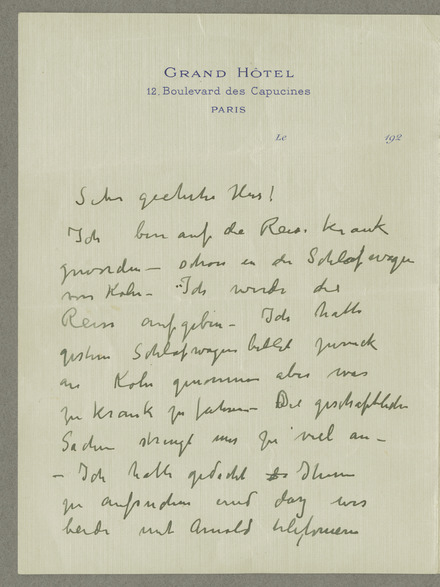 GRAND HÔTEL
12, Boulevard des Capucines
PARIS
Le 192
Sehr geehrter Herr!
Ich bin auf die Reise krank
geworden – schon in der Schlafwagen
von Köln – Ich werde die
Reise aufgeben – Ich hatte
gestern Schlafwagen billet zurück
an Köln genommen aber war
zu krank zu fahren – Die geschäftlichen
Sachen strengt uns zu viel an –
– Ich hatte gedacht Ihnen
zu aufsuchen und dass wir
beide mit Arnold telefonieren